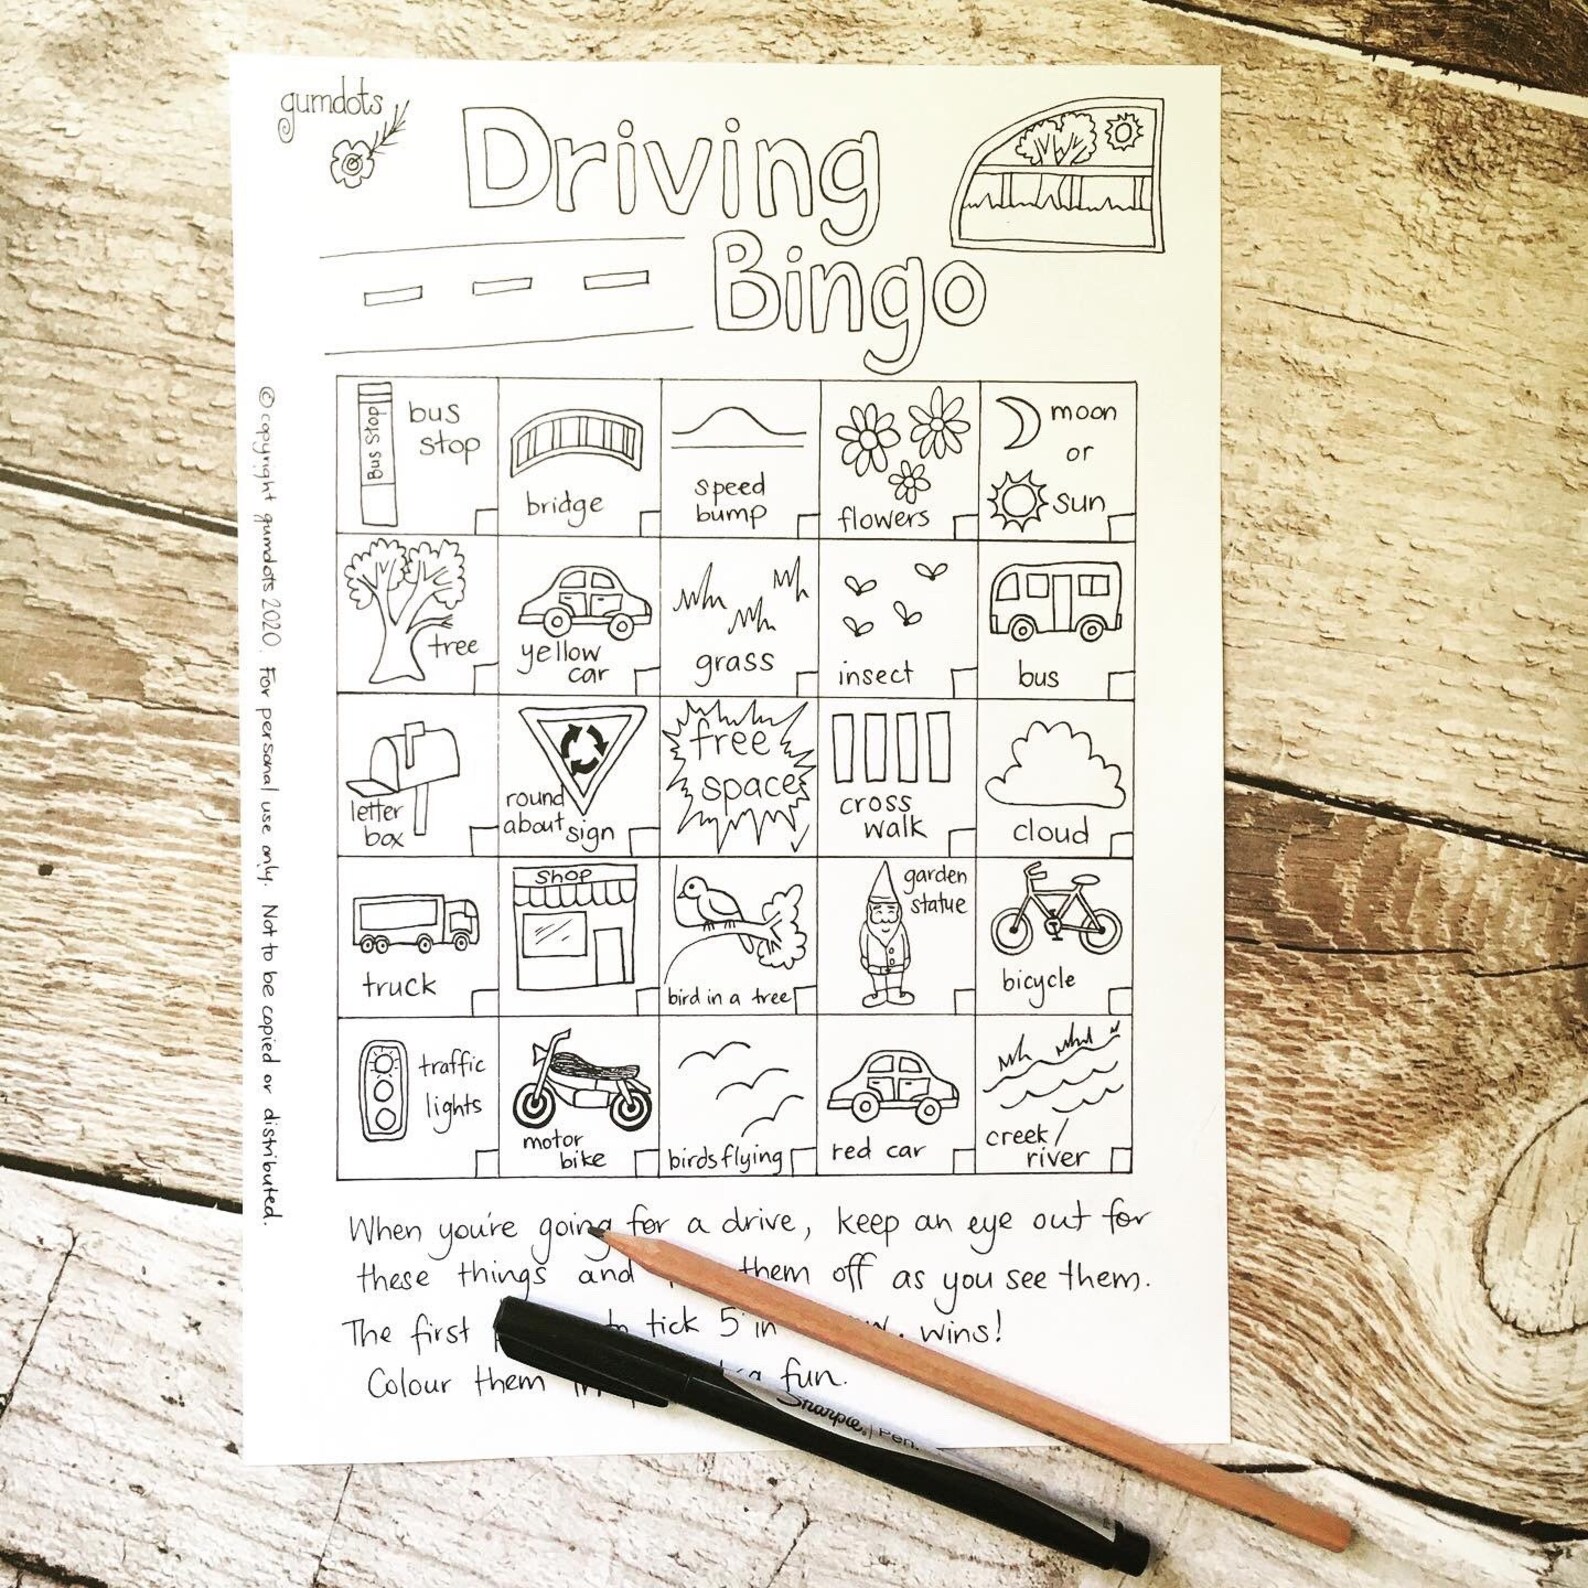 gumdots
Driving
Bingo
© copyright gumdots 2020. For personal use only. Not to be copied or distributed.
Bus Stop
bus
stop
bridge
speed
bump
flowers
moon
or
sun
tree
yellow
car
grass
insect
bus
letter
box
round
about sign
free
space
cross
walk
cloud
truck
Shop
bird in a tree
garden
statue
bicycle
traffic
lights
motor
bike
birds flying
red car
creek/
river
When you're going for a drive, keep an eye out for
these things and them off as you see them.
The first to tick 5 in wins!
Colour them fun.
Sharpie Pen.